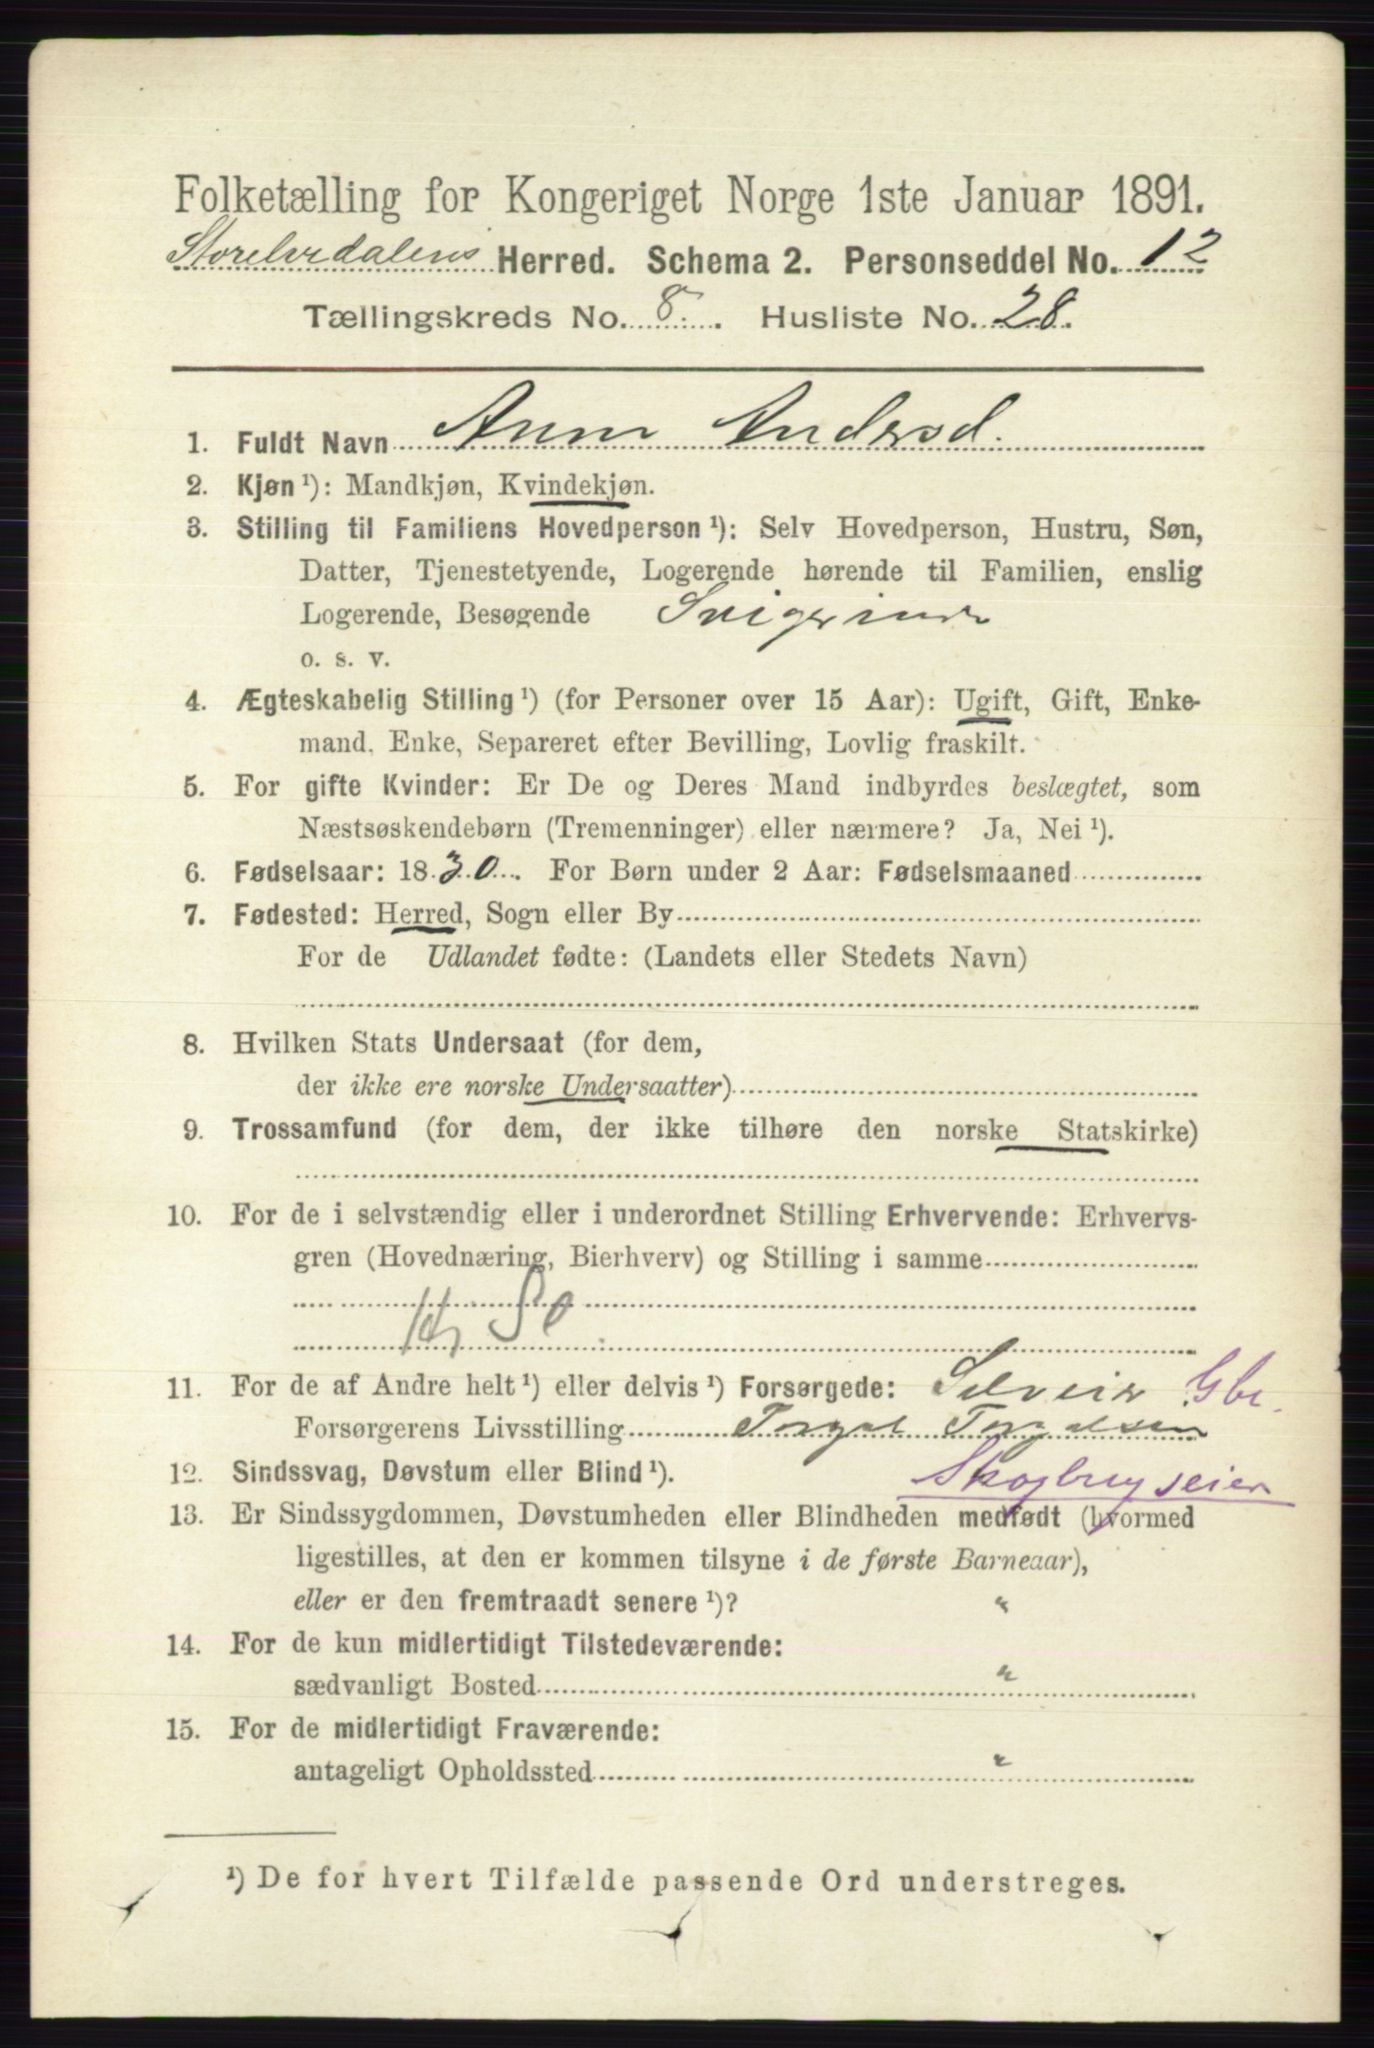 Folketælling for Kongeriget Norge 1ste Januar 1891.
Storelvedalens Herred. Schema 2. Personseddel No. 12
Tællingskreds No. 8. Husliste No. 28.
1. Fuldt Navn Anne Andersd.
2. Kjøn ¹): Mandkjøn, Kvindekjøn.
3. Stilling til Familiens Hovedperson ¹): Selv Hovedperson, Hustru, Søn,
Datter, Tjenestetyende, Logerende hørende til Familien, enslig
Logerende, Besøgende Svigerinde
o. s. v.
4. Ægteskabelig Stilling ¹) (for Personer over 15 Aar): Ugift, Gift, Enke-
mand, Enke, Separeret efter Bevilling, Lovlig fraskilt.
5. For gifte Kvinder: Er De og Deres Mand indbyrdes beslægtet, som
Næstsøskendebørn (Tremenninger) eller nærmere? Ja, Nei ¹).
6. Fødselsaar: 1830. For Børn under 2 Aar: Fødselsmaaned
7. Fødested: Herred, Sogn eller By
For de Udlandet fødte: (Landets eller Stedets Navn)
8. Hvilken Stats Undersaat (for dem,
der ikke ere norske Undersaatter)
9. Trossamfund (for dem, der ikke tilhøre den norske Statskirke)
10. For de i selvstændig eller i underordnet Stilling Erhvervende: Erhvervs-
gren (Hovednæring, Bierhverv) og Stilling i samme
11. For de af Andre helt ¹) eller delvis ¹) Forsørgede: Selveier Gbr.
Forsørgerens Livsstilling Torgal Torgalsen
12. Sindssvag, Døvstum eller Blind ¹). Skogbrug seier
13. Er Sindssygdommen, Døvstumheden eller Blindheden medfødt (hvormed
ligestilles, at den er kommen tilsyne i de første Barneaar),
eller er den fremtraadt senere ¹)? "
14. For de kun midlertidigt Tilstedeværende:
sædvanligt Bosted "
15. For de midlertidigt Fraværende:
antageligt Opholdssted "
¹) De for hvert Tilfælde passende Ord understreges.